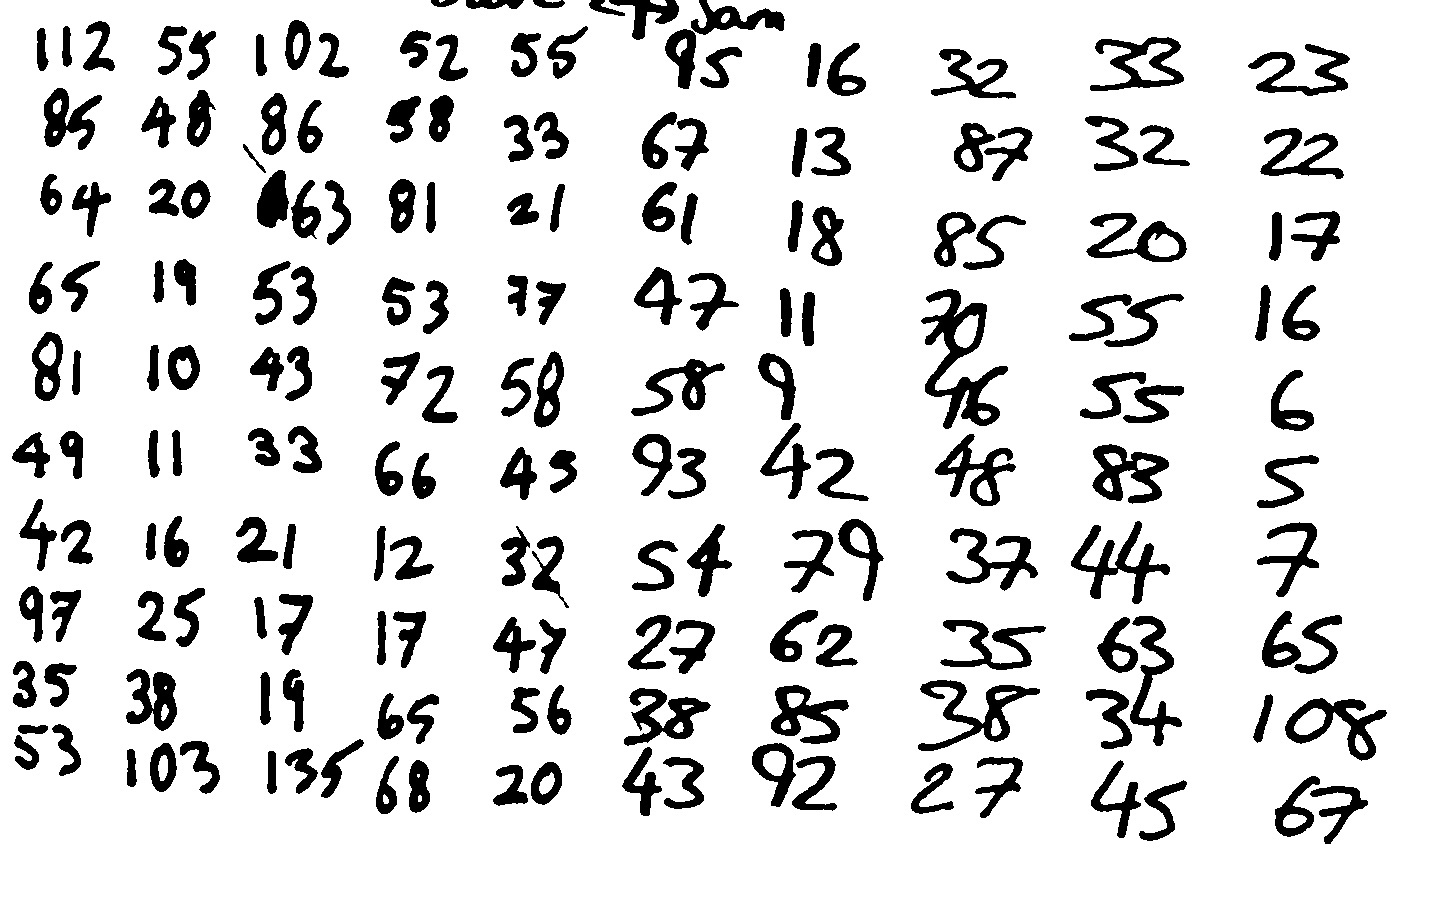 Sam
112 55 102 52 55 95 16 32 33 23
85 48 86 58 33 67 13 87 32 22
64 20 63 81 21 61 18 85 20 17
65 19 53 53 77 47 11 70 55 16
81 10 43 72 58 58 9 46 55 6
49 11 33 66 45 93 42 48 83 5
42 16 21 12 32 54 79 37 44 7
97 25 17 17 47 27 62 35 63 65
35 38 19 65 56 38 85 38 34 108
53 103 135 68 20 43 92 27 45 67